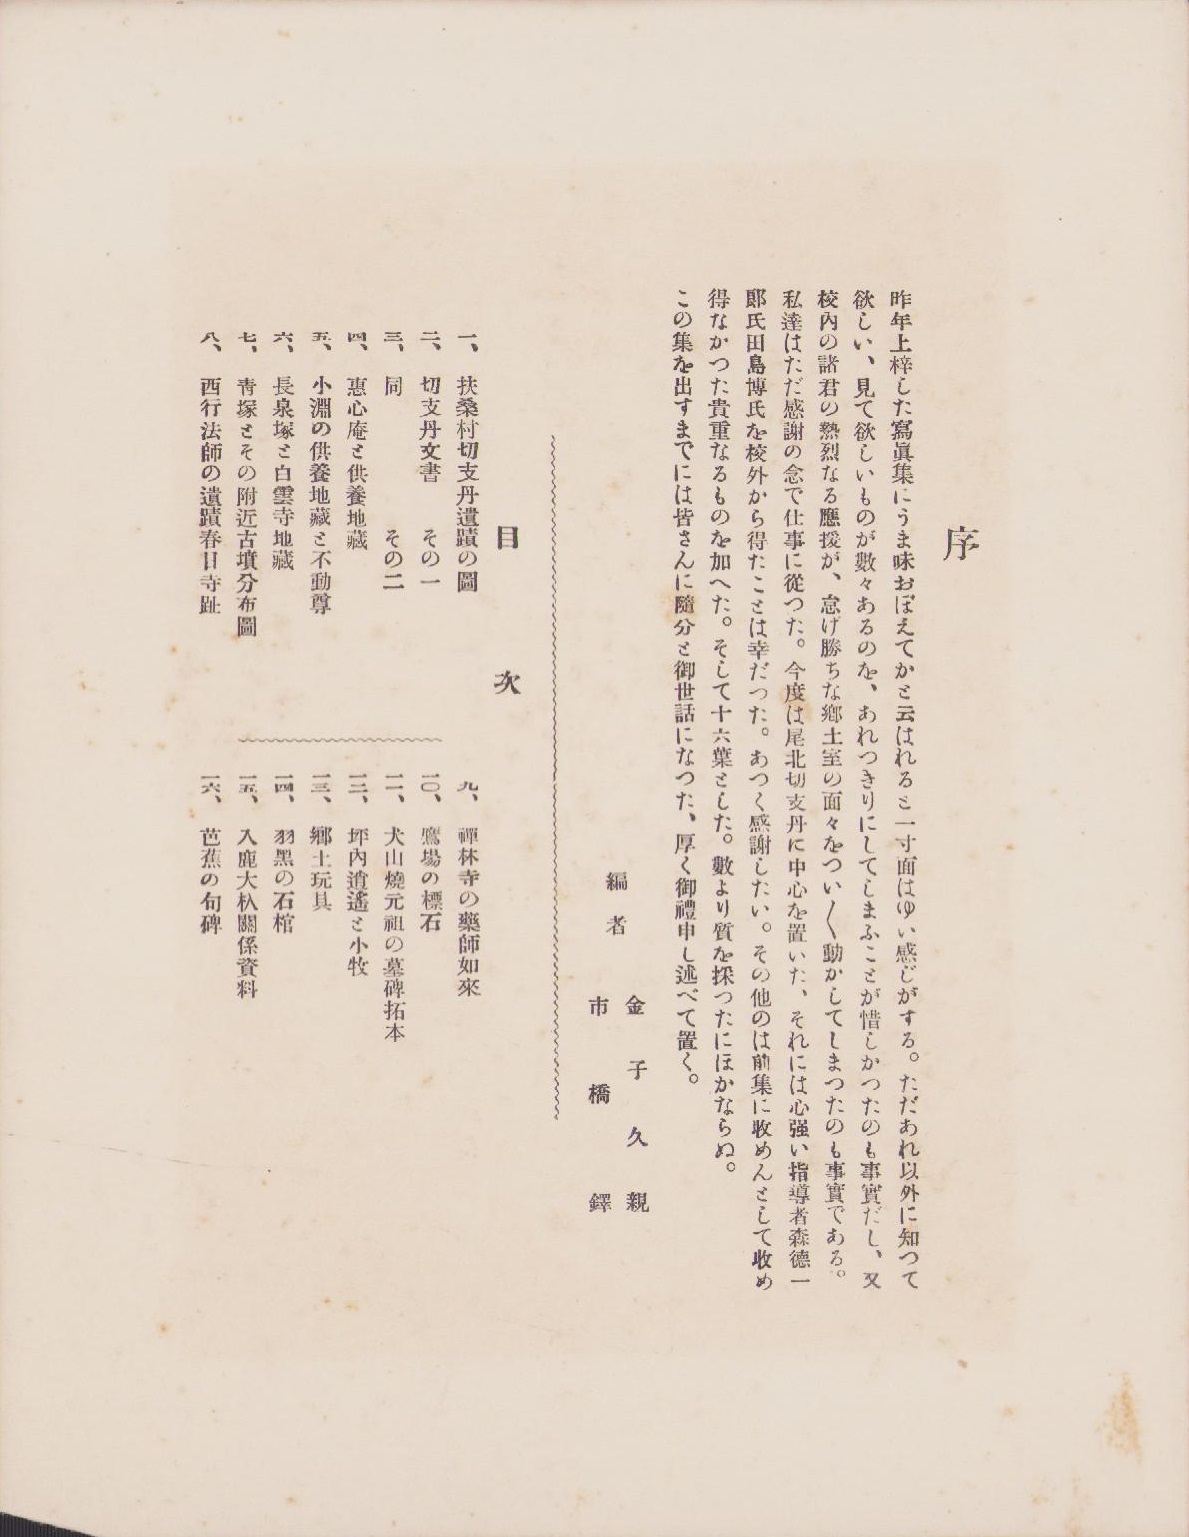 序
昨年上梓した寫眞集にうま味おぼえてかと云はれると一寸面はゆい感じがする。ただあれ以外に知つて
欲しい、見て欲しいものが數々あるのを、あれつきりにしてしまふことが惜しかつたのも事實だし、又
校內の諸君の熱烈なる應援が、怠げ勝ちな鄕土室の面々をつい〱動かしてしまつたのも事實である。
私達はただ感謝の念で仕事に從つた。今度は尾北切支丹に中心を置いた、それには心强い指導者森德一
郞氏田島博氏を校外から得たことは幸だつた。あつく感謝したい。その他のは前集に收めんとして收め
得なかつた貴重なるものを加へた。そして十六葉とした。數より質を採つたにほかならぬ。
この集を出すまでには皆さんに隨分と御世話になつた、厚く御禮申し述べて置く。
編者
金子久親
市橋鐸
目次
一、扶桑村切支丹遺蹟の圖
二、切支丹文書 その一
三、同 その二
四、惠心庵と供養地藏
五、小淵の供養地藏と不動尊
六、長泉塚と白雲寺地藏
七、靑塚とその附近古墳分布圖
八、西行法師の遺蹟春日寺趾
九、禪林寺の藥師如來
一〇、鷹場の標石
一一、犬山燒元祖の墓碑拓本
一二、坪內逍遙と小牧
一三、鄕土玩具
一四、羽黑の石棺
一五、入鹿大杁關係資料
一六、芭蕉の句碑